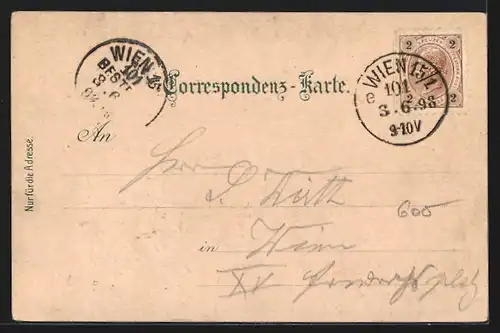 WIEN 
101
BEST
3 6
98
Correspondenz-Karte.
2 2
2 2
WIEN 15/1
101
3.6.98
9-10V
e
An
Herrn
in Wien
XV
600
Nur für die Adresse.